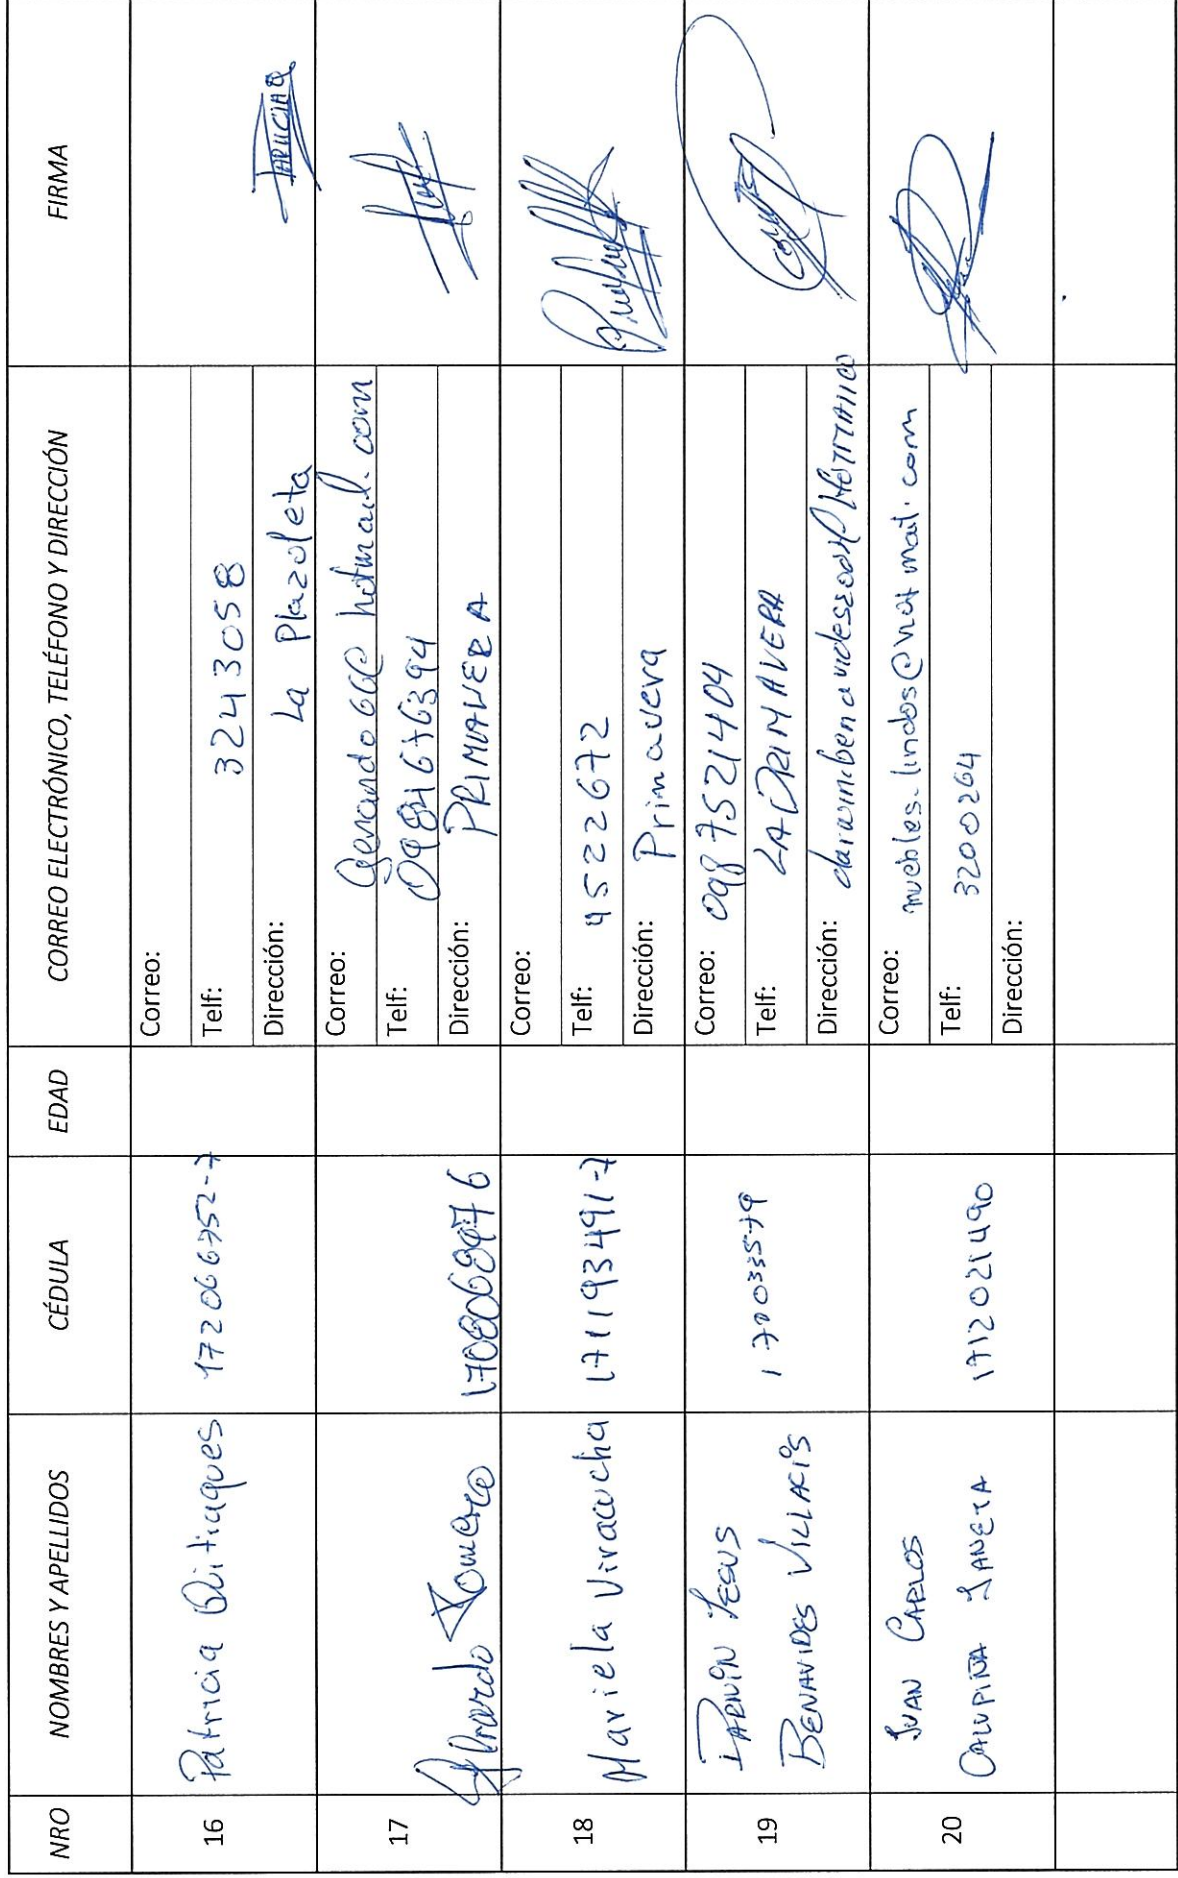 NRO NOMBRES Y APELLIDOS CÉDULA EDAD CORREO ELECTRÓNICO, TELÉFONO Y DIRECCIÓN FIRMA
16 Patricia Quitiaques 172066752-7
Correo:
Telf: 3243058
Dirección: La Plazoleta
17 Gerardo Romero 1708068976
Correo: Gerardo66@hotmail.com
Telf: 0984676394
Dirección: PRIMAVERA
18 Mariela Viracucha 171193491-7
Correo:
Telf: 4522672
Dirección: Primavera
19 DARWIN JESUS
BENAVIDES VILLACIS
Correo: 0987521404
Telf: LA PRIMAVERA
Dirección:
20 JUAN CARLOS
CALUPIÑA 1712021490
Correo: muebles-lindos@hotmail.com
Telf: 3200264
Dirección: